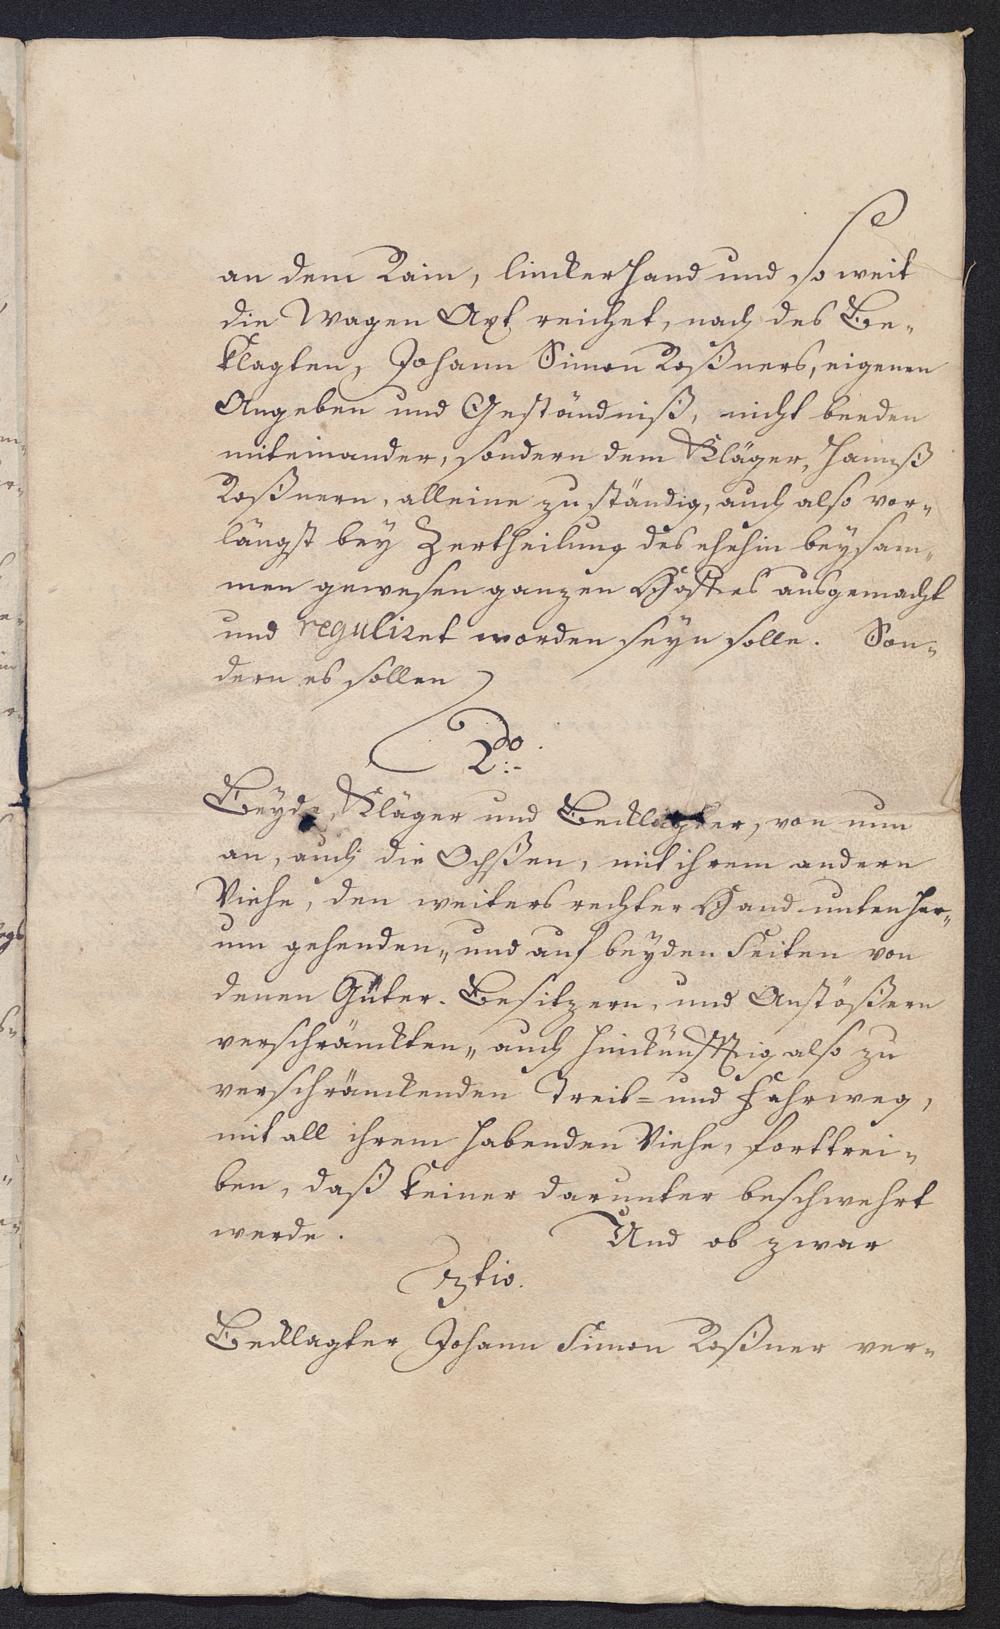 an dem Rain, lincker Hand und so weit
die Wagen Axt reichet, nach des Be-
klagten, Johann Simon Roßners, eigenen
Angeben und Geständniß, nicht beeden
miteinander, sondern dem Kläger, Hannß
Roßnern, alleine zuständig, auch also vor-
längst bey Zertheilung des ehehin beysam-
men gewesen ganzen Hofes ausgemacht
und reguliret worden seyn solle. Son-
dern es sollen
2do.
Beyde, Kläger und Becklagter, von nun
an, auch die Ochßen, mit ihrem andern
Viehe, den weiters rechter Hand unten her-
um gehenden, und auf beyden Seiten von
denen Güter-Besitzern, und Anstößern
verschränckten, auch hinkünfftig also zu
verschränckenden Treib- und Fahrweg,
mit all ihrem habenden Viehe, forttrei-
ben, daß keiner darunter beschwehrt
werde. Und ob zwar
3tio.
Becklagter Johann Simon Roßner ver-